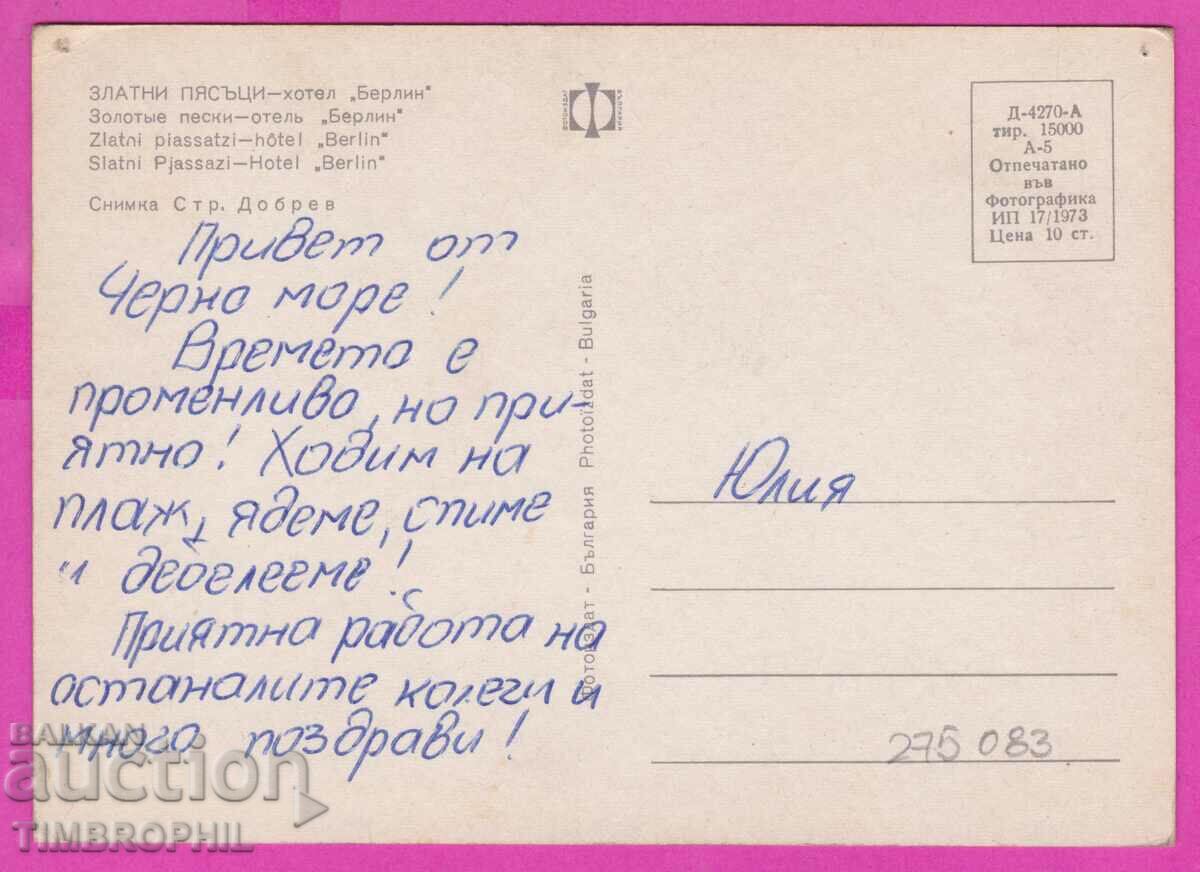 ЗЛАТНИ ПЯСЪЦИ—хотел „Берлин"
Золотые пески—отель „Берлин"
Zlatni piassatzi—hôtel „Berlin"
Slatni Pjassazi—Hotel „Berlin"
Снимка Стр. Добрев
Привет от
Черно море!
Времето е
променливо, но при-
ятно! Ходим на
плаж, ядеме, спиме
и дебелееме!
Приятна работа на
останалите колеги и
много поздрави!
Фотоиздат - България Photoïzdat - Bulgaria
Д-4270-А
тир. 15000
А-5
Отпечатано
във
Фотографика
ИП 17/1973
Цена 10 ст.
Юлия
275 083
BALKAN
auction
TIMBROPHIL